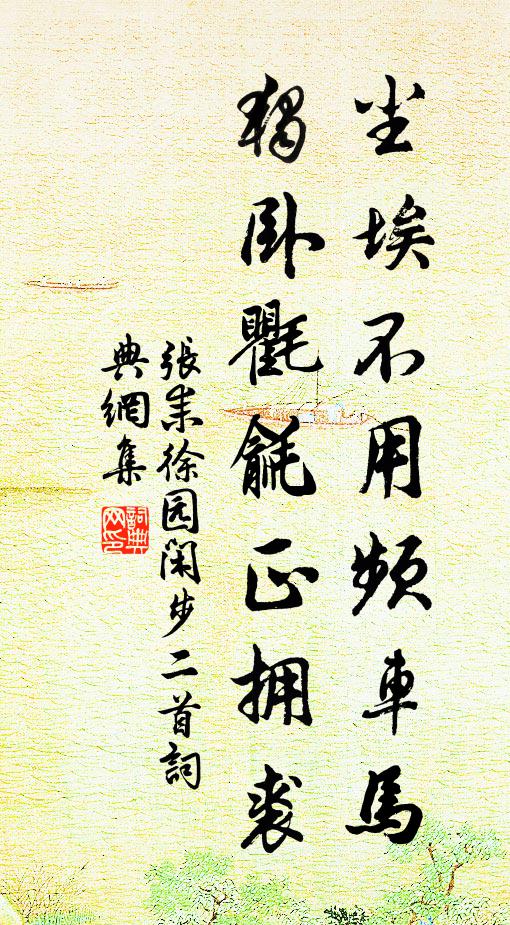 尘埃不用频車馬
獨卧氍毹正拥裘
張耒徐园闲步二首詞
典網集
詞典
网印